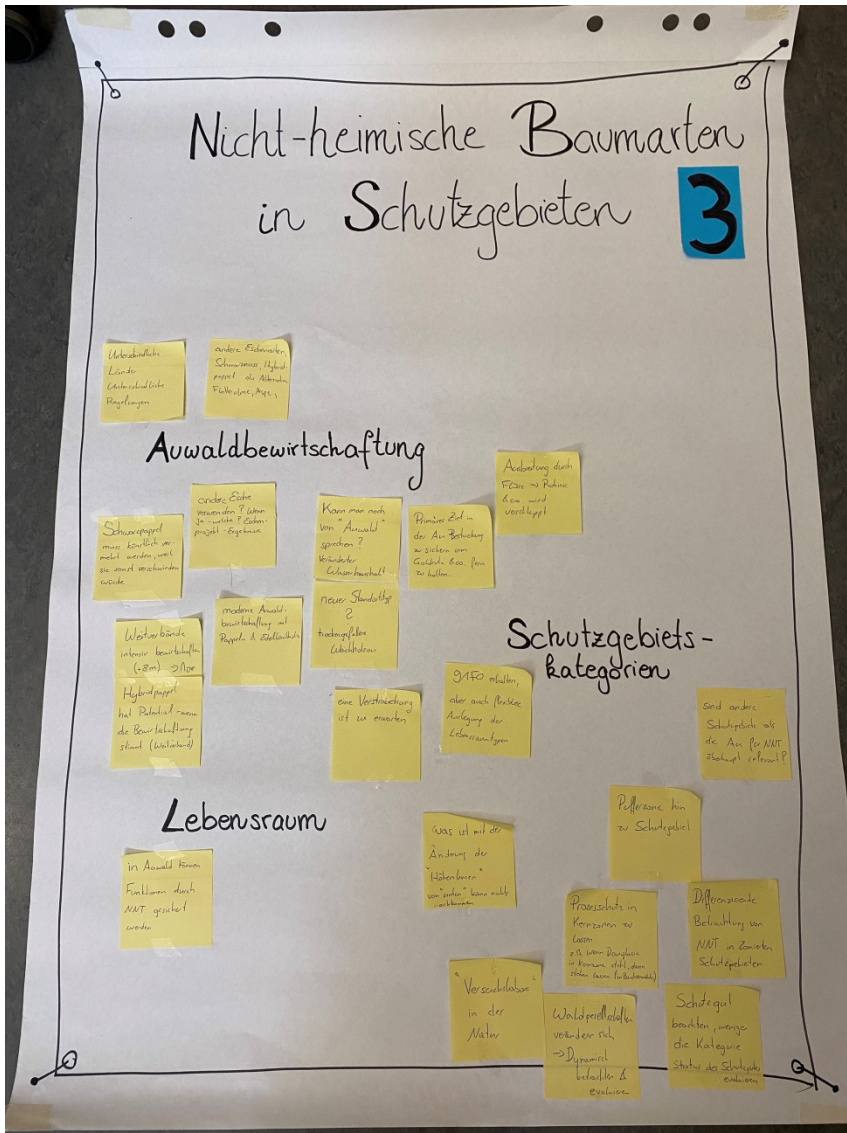 Nicht-heimische Baumarten
in Schutzgebieten
3
Unterschiedliche
Länder
Unterschiedliche
Regelungen
andere Eschenarten,
Schwarznuss, Hybrid-
pappel als Alternative
Flatterulme,
Auwaldbewirtschaftung
Schwarzpappel
muss künstlich ver-
mehrt werden, weil
sie sonst verschwinden
würde
andere Esche
verwenden? Wenn
ja - welche? Eschen-
projekt-Ergebnisse
Kann man noch
von "Auwald"
sprechen?
Veränderter
Wasserhaushalt
Primäres Ziel in
der Au Bestockung
zu sichern um
Goldrute & co. fern
zu halten.
Ausbreitung durch
Flüsse → Robinie
& co. wird
verschleppt
Weitverbände
intensiv bewirtschaften
(+8m) →
Hybridpappel
hat Potential - wenn
die Bewirtschaftung
stimmt (Weitverband)
moderne Auwald-
bewirtschaftung mit
Pappeln & Edellaubholz
neuer Standorttyp
?
trockengefallen
eine Verstrauchung
ist zu erwarten
Schutzgebiets-
kategorien
91F0 erhalten,
aber auch flexiblere
Auslegung der
Lebensraumtypen
sind andere
Schutzgebiete als
die Au für NNT
überhaupt relevant?
Pufferzone hin
zu Schutzgebiet
Lebensraum
in Auwald können
Funktionen durch
NNT gesichert
werden
Was ist mit der
Änderung der
"Höhenlinien"
von "unten" kann nichts
nachkommen
Prozessschutz in
Kernzonen zu
lassen
z.B. wenn Douglasie
in Kernzone steht, dann
stehen lassen
Differenzierende
Betrachtung von
NNT in Zonierten
Schutzgebieten
"Versuchslabor"
in der
Natur
Waldgesellschaften
verändern sich
→ Dynamisch
betrachten &
evaluieren
Schutzgut
beachten, weniger
die Kategorie
Status des Schutzguts
evaluieren